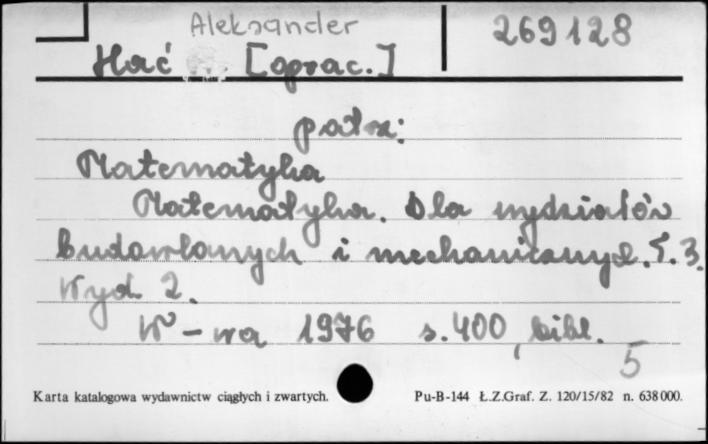 Aleksander
269128
Hać [oprac.]
patrz:
Matematyka
Matematyka. Dla wydziałów
budowlanych i mechanicznych. T. 3.
Wyd. 2.
W-wa 1976 s. 400, bibl.
5
Karta katalogowa wydawnictw ciągłych i zwartych. Pu-B-144 Ł.Z.Graf. Z. 120/15/82 n. 638000.